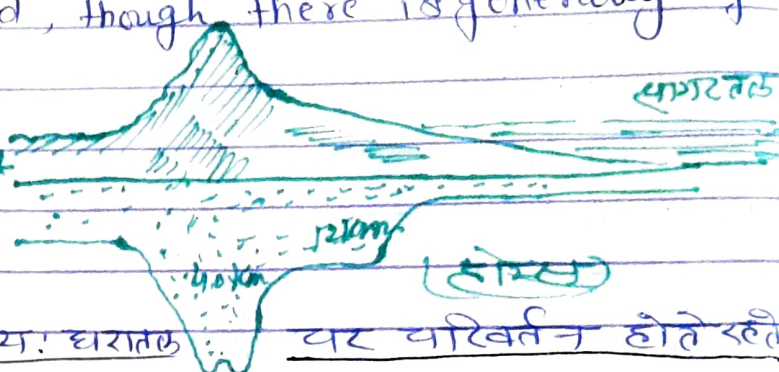 d, though there is generally
सागरतल
12km
40km
(होम्स)
य: धरातल पर परिवर्तन होते रहते